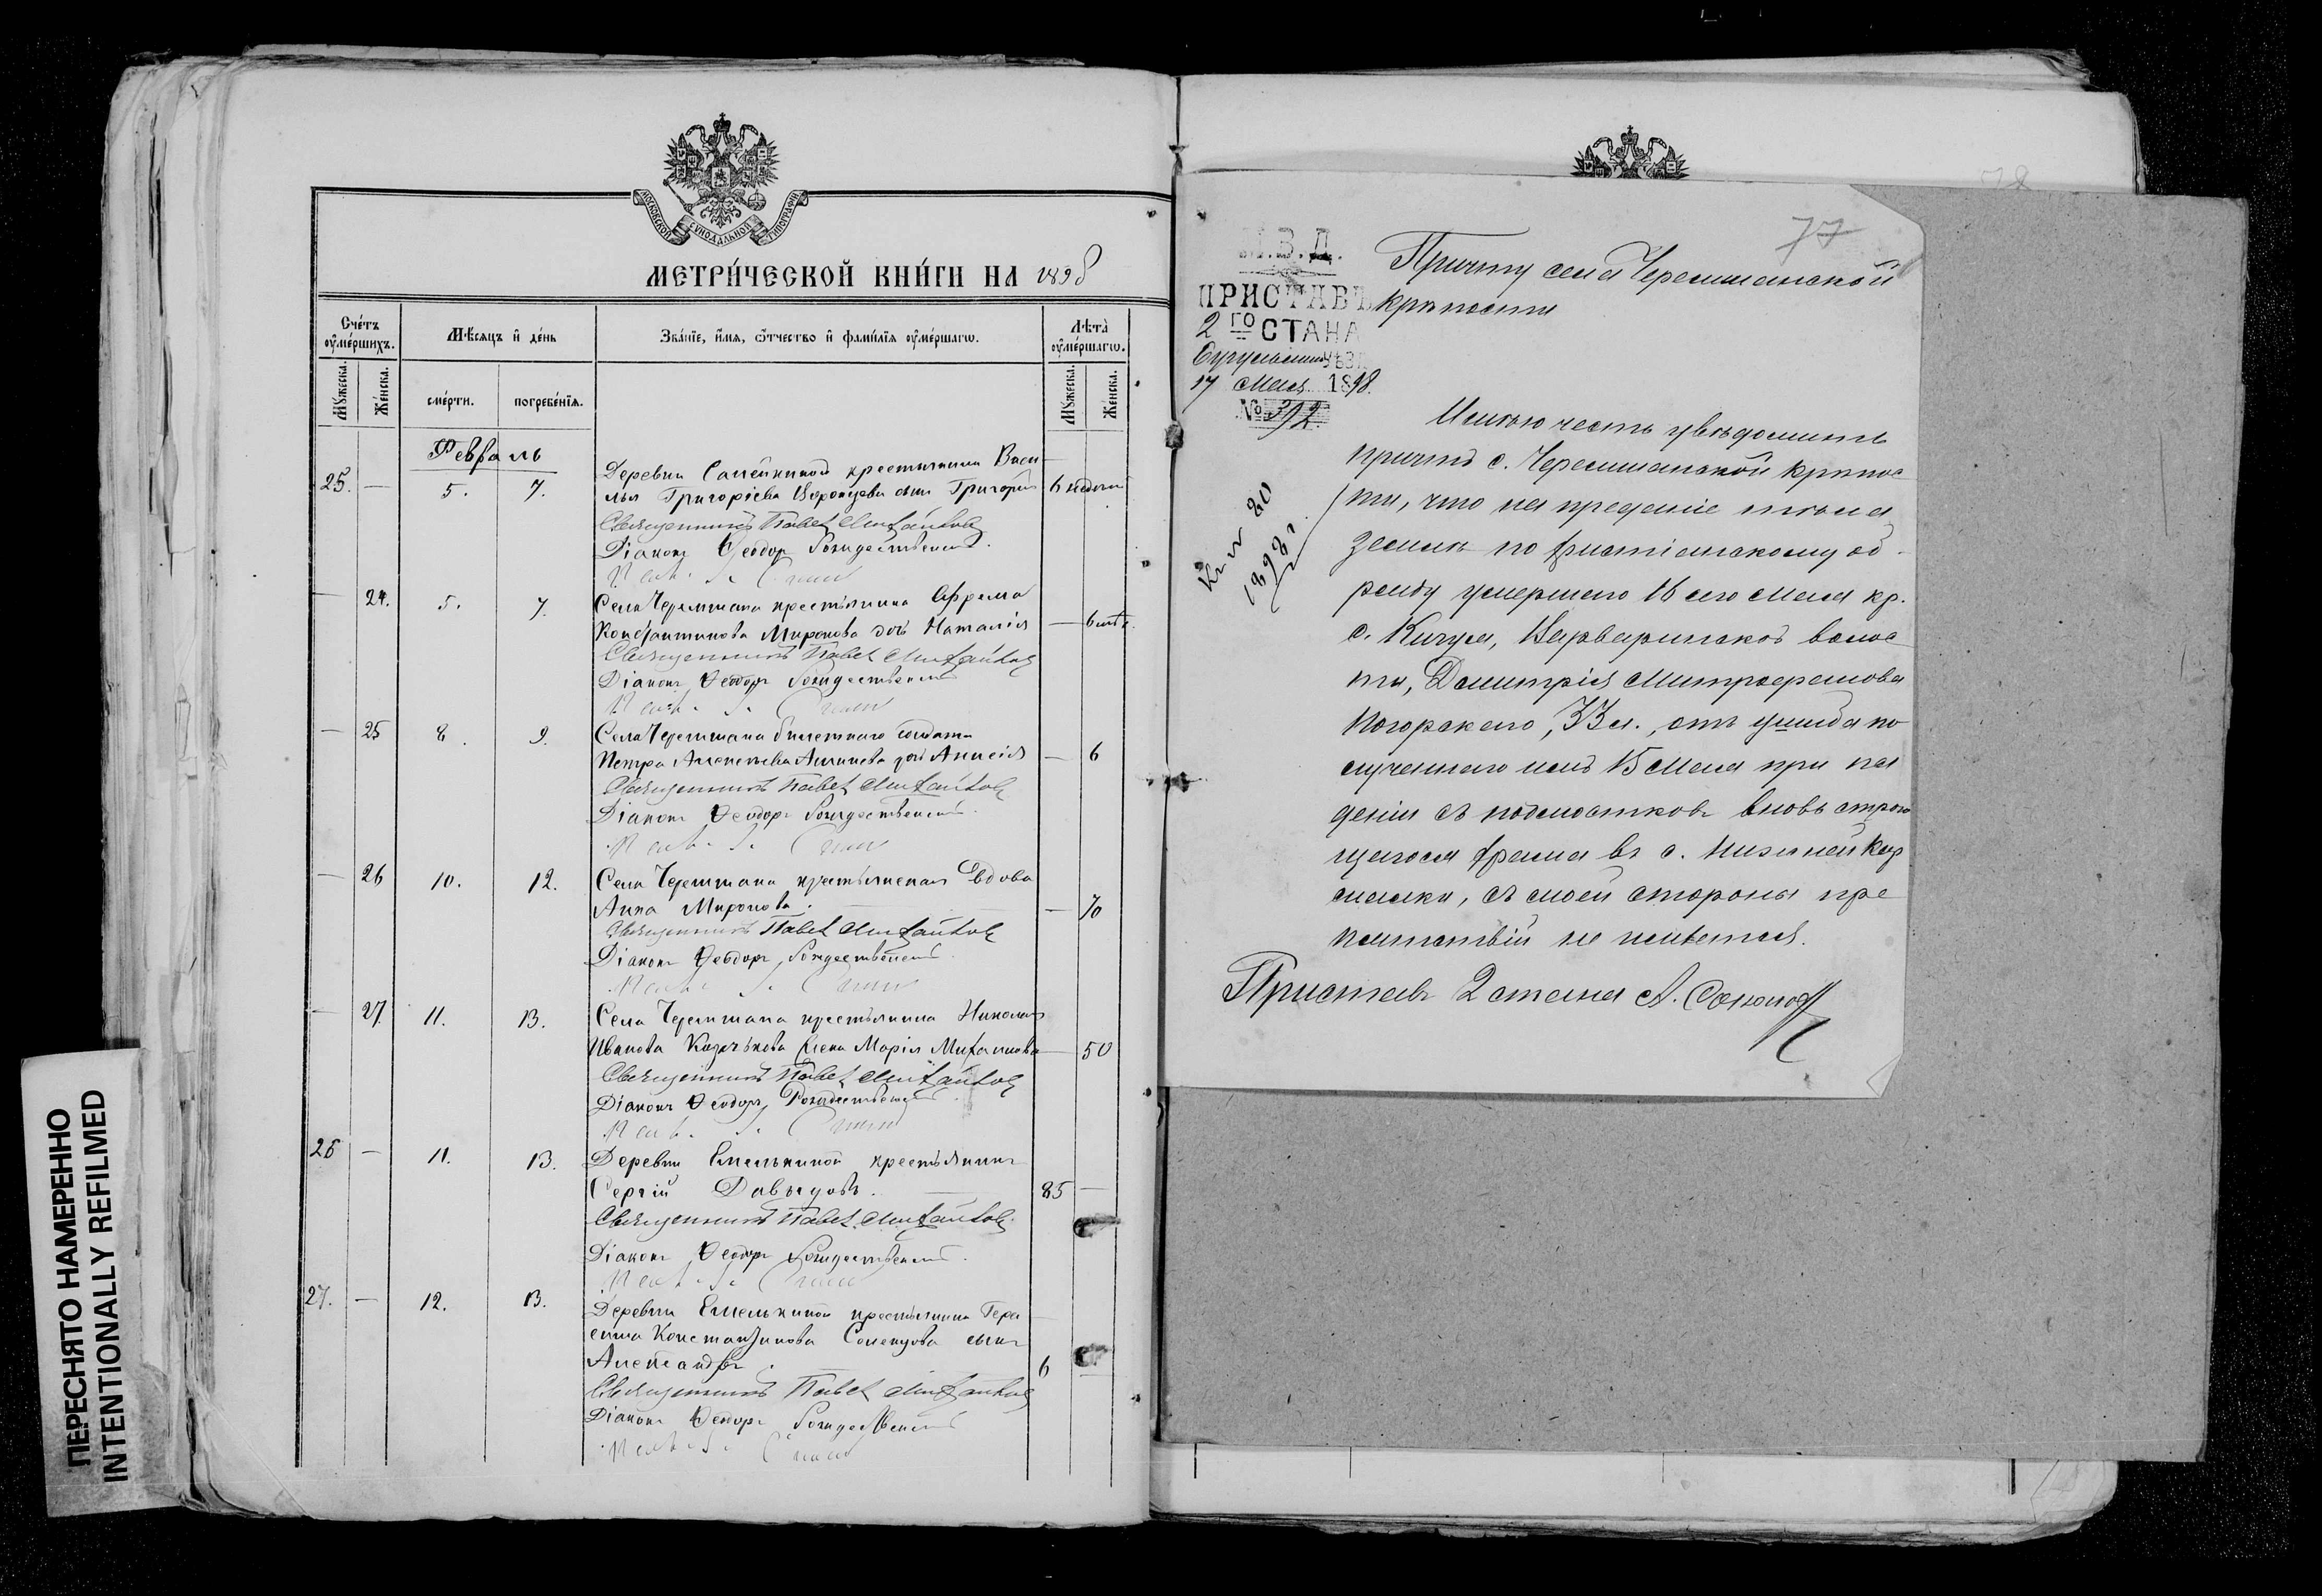 МОСКОВСКОЙ СУНОДАЛЬНОЙ ТИПОГРАФІИ
МЕТРИ́ЧЕСКОЙ КНИ́ГИ НА 1898
Сче́тъ оу҆ме́ршихъ.
Мѣ́сяцъ и҆ де́нь
Зва́нїе, и҆́мя, ѻ҆́тчество и҆ фами́лїя оу҆ме́ршагѡ.
Лѣ́та оу҆ме́ршагѡ.
Мꙋ́жеска.
Же́нска.
сме́рти.
погребе́нїя.
Мꙋ́жеска.
Же́нска.
Февраль
25. — 5. 7. Деревни крестьянина Васи
лья Григоріева Воронцова сынъ Григорій 6 недѣль
Священникъ Павел Михайлов
Діаконъ Ѳеодоръ Рождественскій.
— 24. 5. 7. Села Черемшана крестьянина Ефрема
Константинова Миронова дочь Наталія — 6
Священникъ Павел Михайлов
Діаконъ Ѳеодоръ Рождественскій
— 25 8. 9. Села Черемшана билетнаго солдата
Петра Алексѣева дочь Анисія — 6
Священникъ Павел Михайлов
Діаконъ Ѳеодоръ Рождественскій
— 26 10. 12. Села Черемшана крестьянская вдова
Анна Миронова. — 70
Священникъ Павел Михайлов
Діаконъ Ѳеодоръ Рождественскій
— 27. 11. 13. Села Черемшана крестьянина Николая
Иванова жена Марія Михаилова — 50
Священникъ Павел Михайлов
Діаконъ Ѳеодоръ Рождественскій
26 — 11. 13. Деревни Емелькиной крестьянинъ
Сергій Давыдовъ. 85 —
Священникъ Павел Михайлов
Діаконъ Ѳеодоръ Рождественскій.
27. — 12. 13. Деревни Емелькиной крестьянина Гера
сима Константинова сынъ
Александръ. 6
Священникъ Павел Михайлов
Діаконъ Ѳеодоръ Рождественскій
77
М.В.Д.
ПРИСТАВЪ
2 ГО СТАНА
Бугульмин УѢЗД
17 Мая 1898.
№ 392.
Причту села Черемшанской
крѣпости
Имѣю честь увѣдомить
причтъ с. Черемшанской крѣпос
ти, что на преданіе тѣла
землѣ по христіанскому об-
ряду умершаго 16 сего Мая кр.
с. Кичуя, Варваринской волос
ти, Димитрія Митрофанова
Погорскаго, 33 л., отъ ушиба по
лученнаго имъ 15 Мая при па
деніи съ подмостковъ вновь строю
щагося храма въ с. Нижней Кар
малки, съ моей стороны пре
пятствій не имѣется.
Приставъ 2 стана А. Соколов
1898 г.
ПЕРЕСНЯТО НАМЕРЕННО
INTENTIONALLY REFILMED